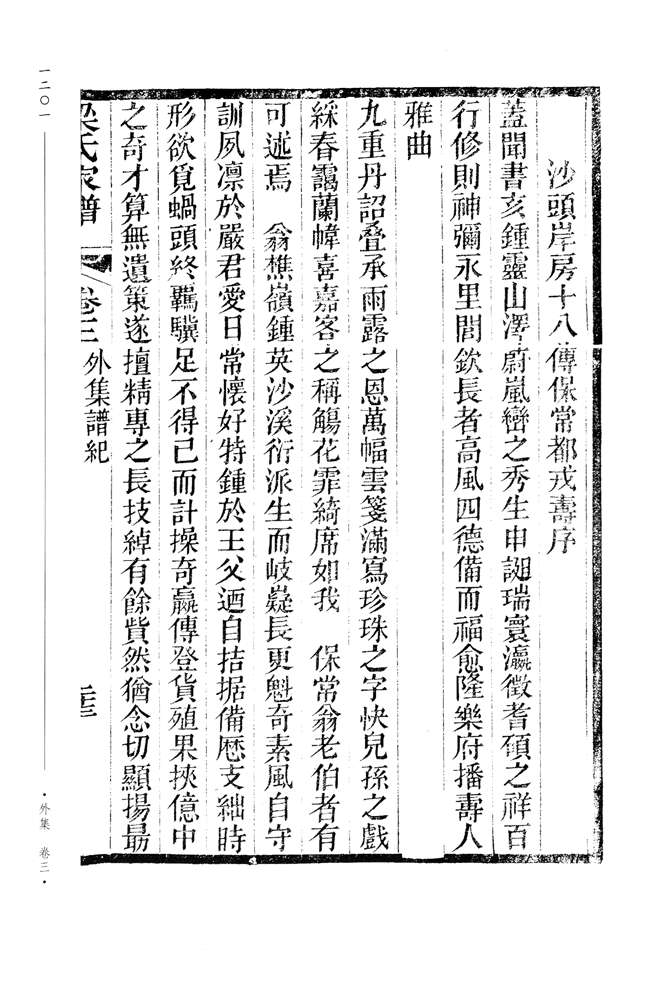 沙頭岸房十八傳保常都戎壽序
蓋聞書亥鍾靈山澤蔚嵐巒之秀生申誕瑞寰瀛徵耆碩之祥百
行修則神彌永里閭欽長者高風四德備而福愈隆樂府播壽人
雅曲
九重丹詔叠承雨露之恩萬幅雲箋滿寫珍珠之字快兒孫之戲
綵春靄蘭幃喜嘉客之稱觴花霏綺席如我　保常翁老伯者有
可述焉　翁樵嶺鍾英沙溪衍派生而岐嶷長更魁奇素風自守
訓夙凛於嚴君愛日常懷好特鍾於王父迺自拮据備厯支絀時
形欲覓蝸頭終羈驥足不得已而計操奇贏傳登貨殖果挾億中
之奇才算無遺策遂擅精專之長技綽有餘貲然猶念切顯揚最
梁氏家譜　卷三　外集譜紀　二十三
一二〇一
·外集　卷三·